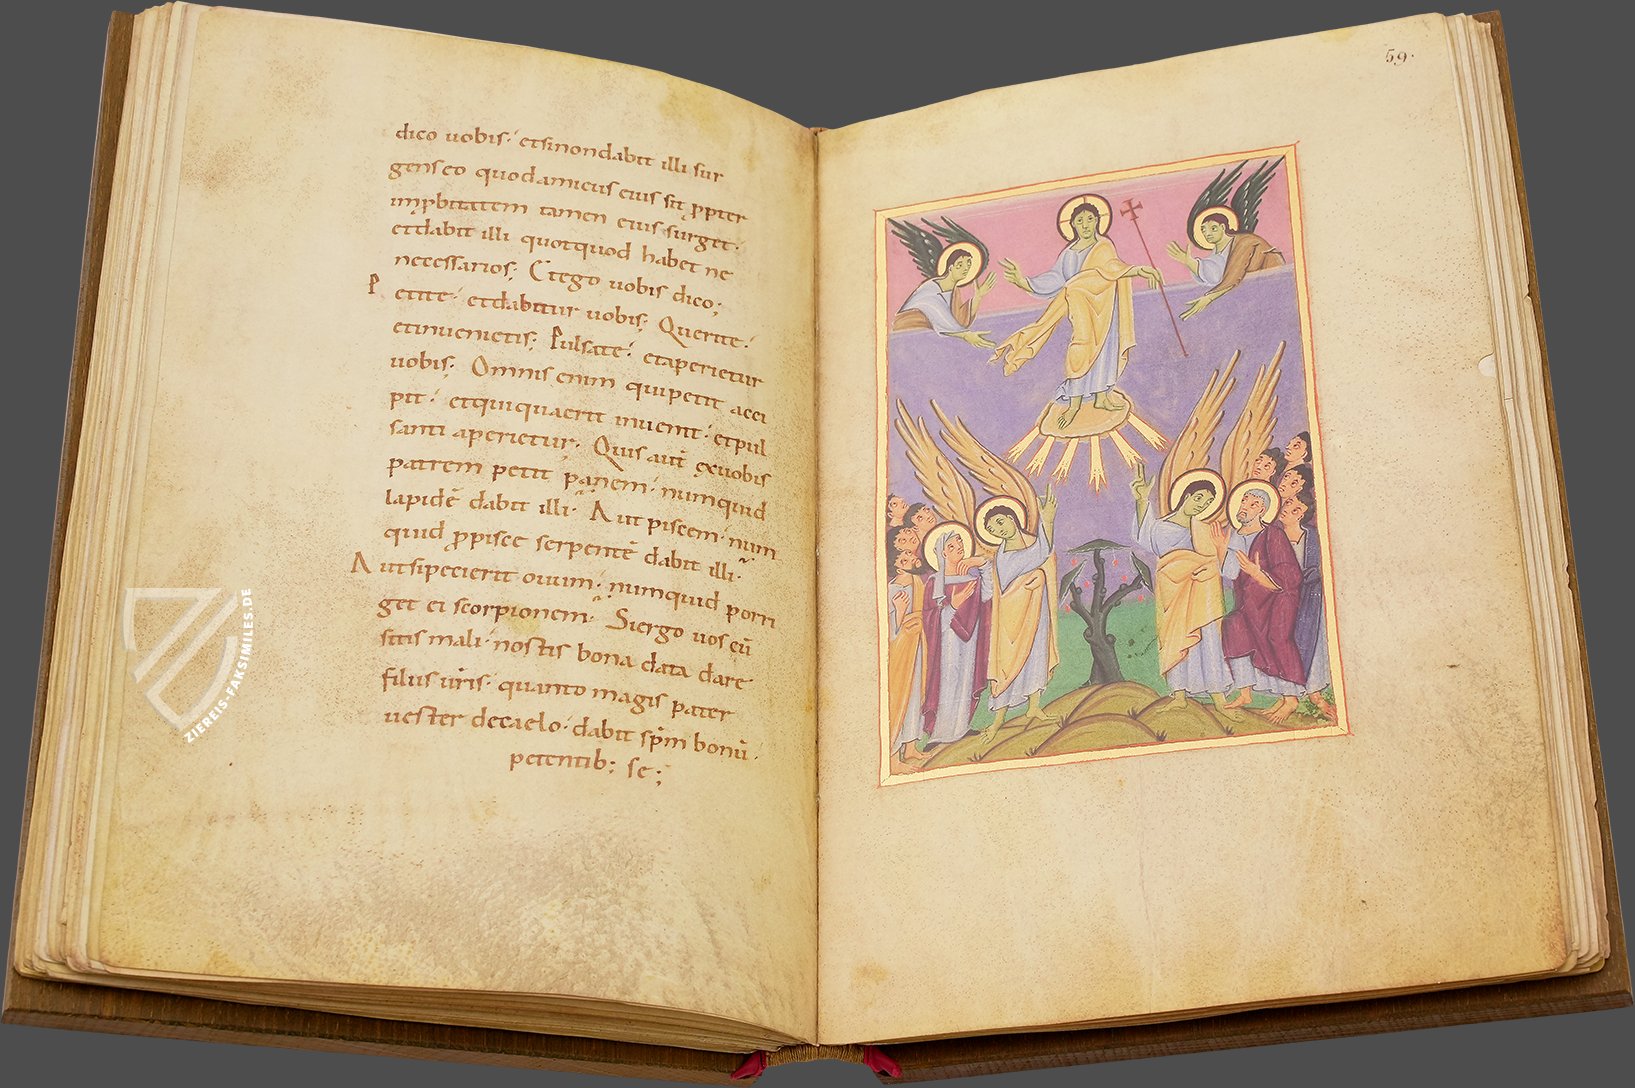 dico uobis· etsinondabit illi sur
gens eo quodamicus eius sit ꝓpter
inꝓbitatem tamen eius surget·
etdabit illi quotquod habet ne
necessarios; Etego uobis dico;
Petite· etdabitur uobis; Querite·
etinuenietis; Pulsate· etaperietur
uobis· Omnis enim quipetit acci
pit· etquiquaerit inuenit· etpul
santi aperietur; Quis aut̄ exuobis
patrem petit panem· numquid
lapidē dabit illi· Aut piscem· num
quid ꝓpisce serpentē dabit illi·
Autsipecierit ouum· numquid porri
get ei scorpionem· Siergo uos cū
sitis mali· nostis bona data dare·
filiis ur̄is· quanto magis pater
uester decaelo· dabit sp̄m bonū·
petentib; se;
59·
ZIEREIS-FAKSIMILES.DE